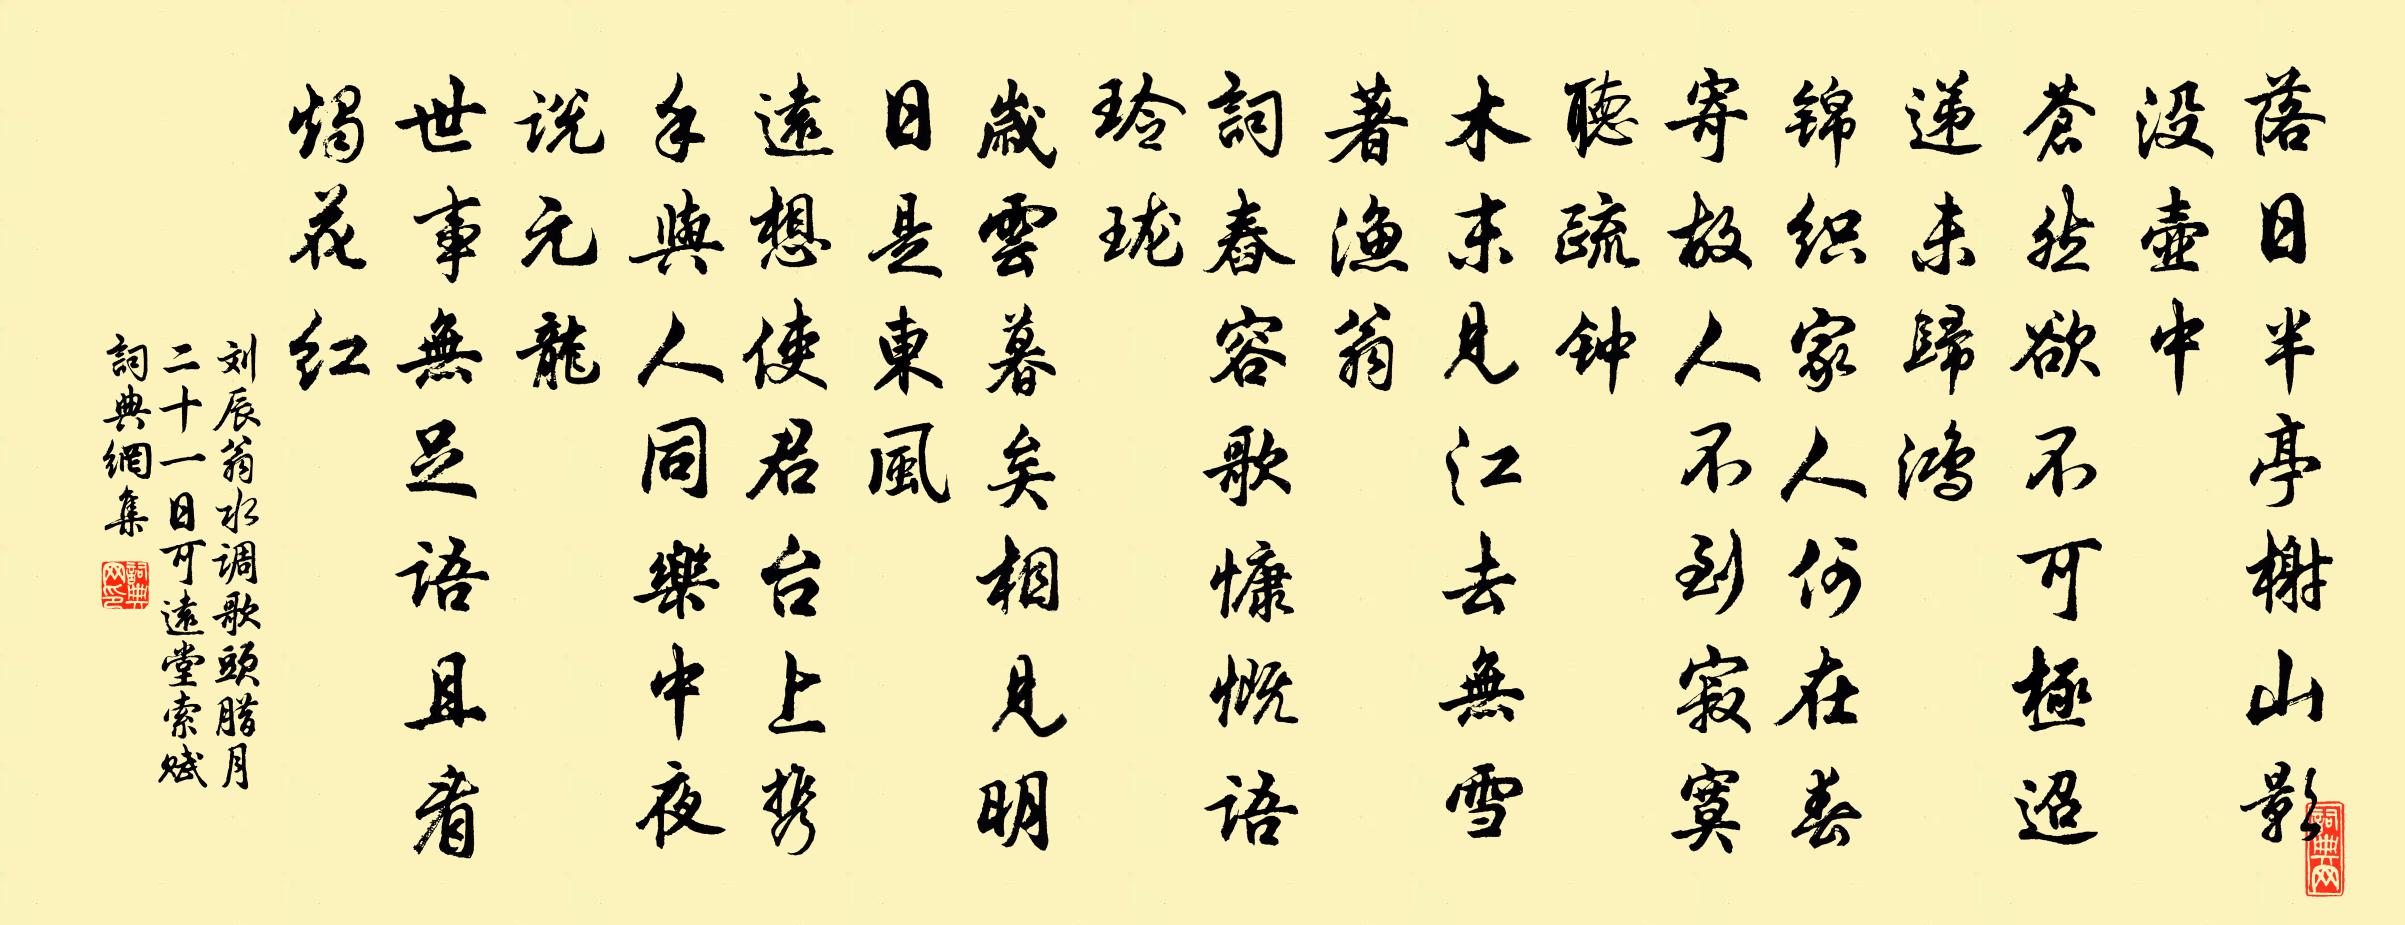 落日半亭榭山影
没壺中
蒼然欲不可極迢
递未歸鸿
锦织家人何在春
寄故人不到寂寞
聽疏钟
木末見江去無雪
著漁翁
詞舂容歌慷慨语
玲珑
歲雲暮矣相見明
日是東風
遠想使君台上携
手與人同樂中夜
说元龍
世事無足语且看
燭花红
刘辰翁水调歌頭腊月
二十一日可遠堂索赋
詞典網集
詞典网印
詞典网